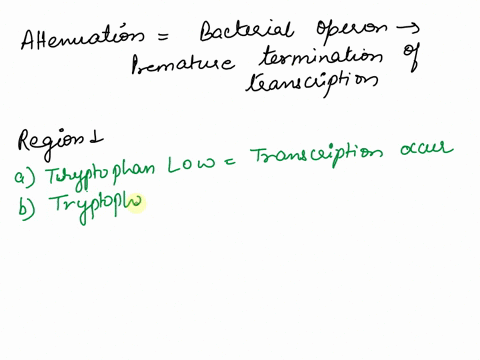 Attenuation = Bacterial operon →
Premature termination of
transcription
Region 1
a) Tryptophan Low = Transcription occur
b) Tryptopho